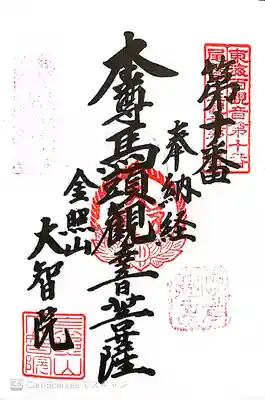 東海百観音第十番
第十番
奉納経
本尊馬頭観音菩薩
金照山
大智院
CamScanner でスキャン